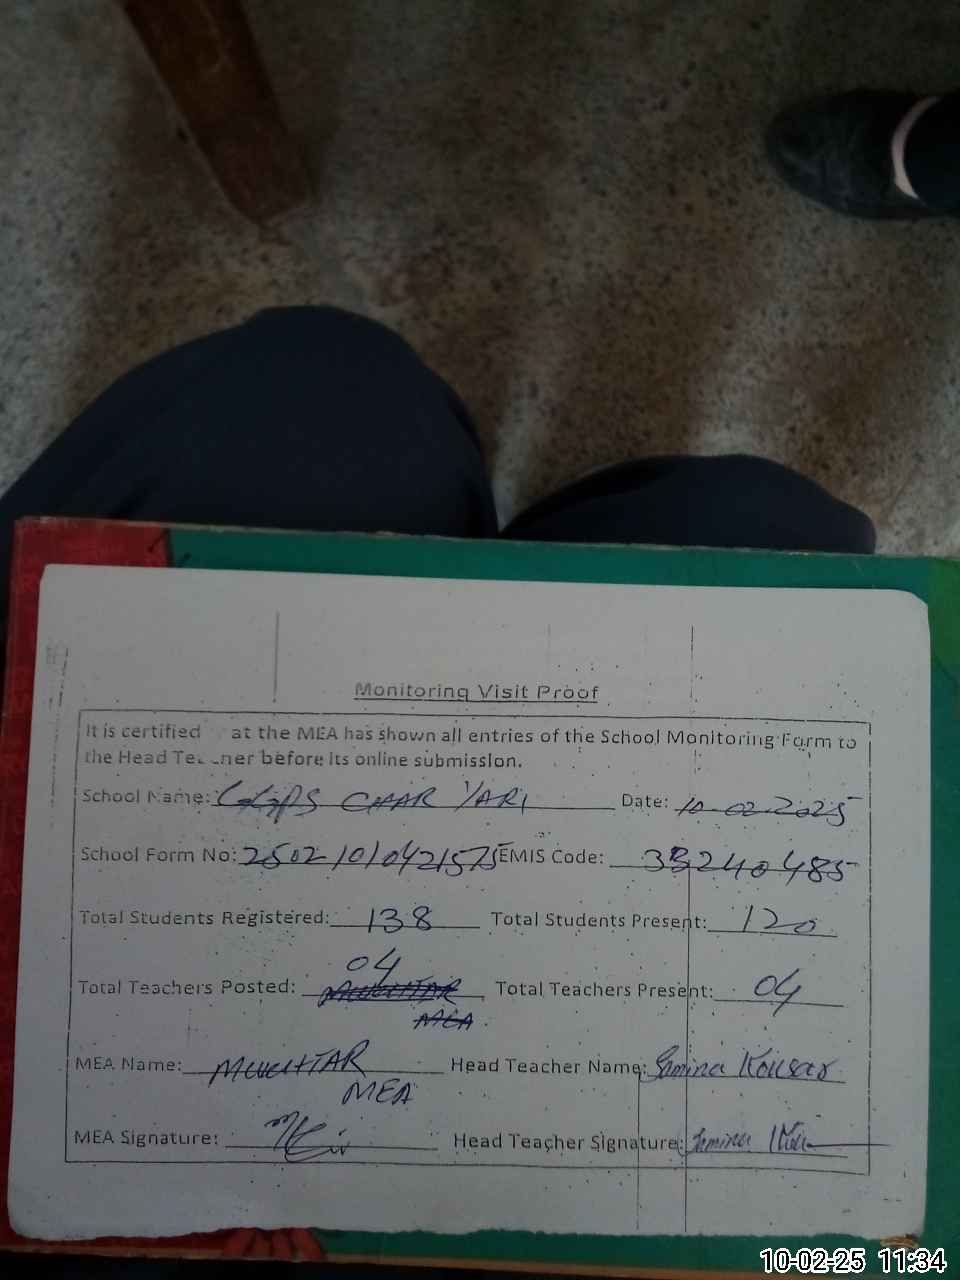 Monitoring Visit Proof
It is certified at the MEA has shown all entries of the School Monitoring Form to
the Head Teacher before its online submission.
School Name: GGPS CHAR YARI Date: 10-02-2025
School Form No: 25021010421575 EMIS Code: 33240485
Total Students Registered: 138 Total Students Present: 120
04
Total Teachers Posted: MUKHTAR Total Teachers Present: 04
MEA
MEA Name: MUKHTAR Head Teacher Name: Samina Kousar
MEA
MEA Signature: Head Teacher Signature: Samina
10-02-25 11:34